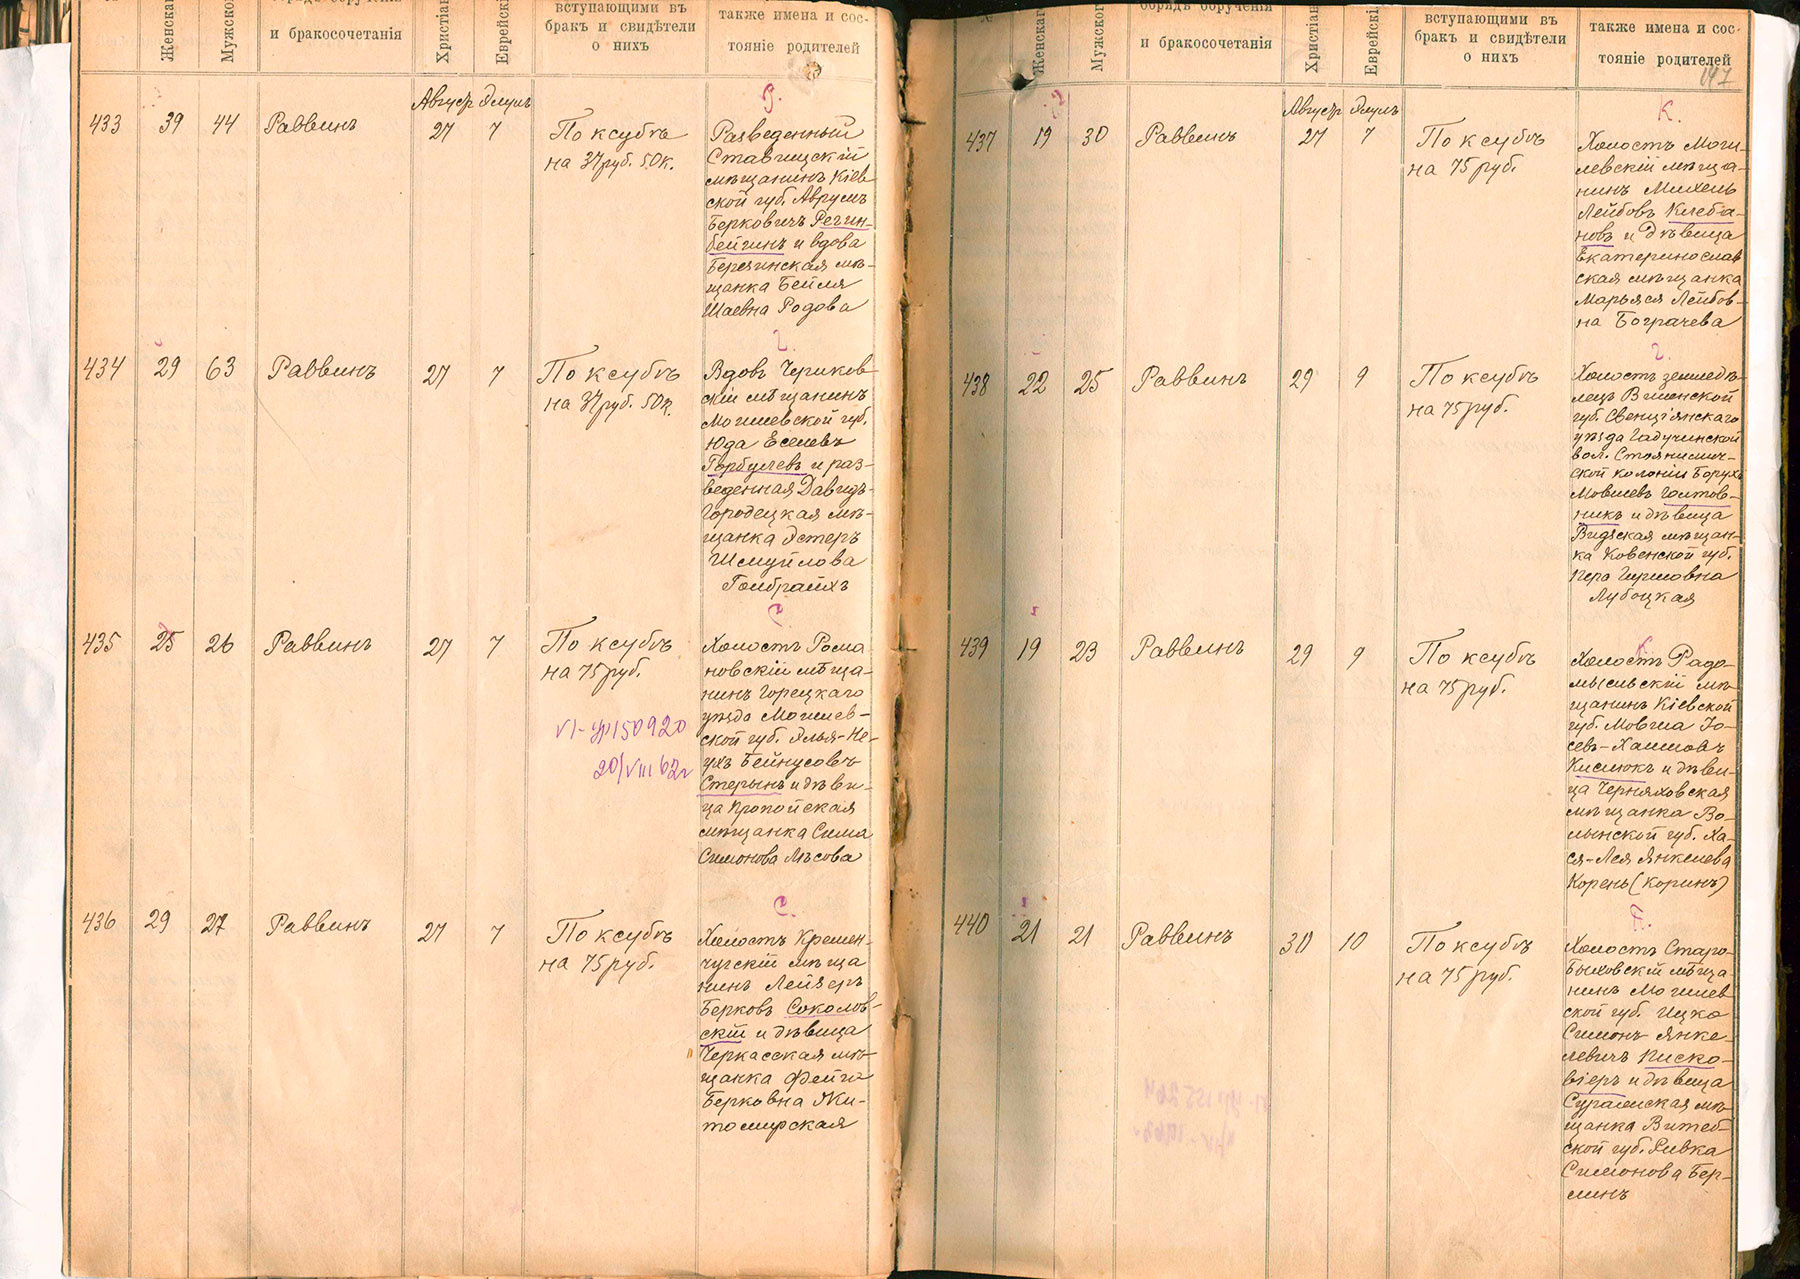 Женска
Мужско
и бракосочетанія
Христіан
Еврейскі
вступающими въ
бракъ и свидѣтели
о нихъ
также имена и сос-
тояніе родителей
433
39
44
Раввинъ
Август
Элулъ
27
7
По ксубѣ
на 37 руб. 50 к.
Р.
Разведенный
Ставищскій
мѣщанинъ Кіев
ской губ. Аврумъ
Берковичъ Регин-
бейгинъ и вдова
Березинская мѣ-
щанка Бейля
Шаевна Родова
434
29
63
Раввинъ
27
7
По ксубѣ
на 37 руб. 50 к.
Г.
Вдовъ Чериков
скій мѣщанинъ
Могилевской губ.
Юда Еселевъ
Горбулевъ и раз-
веденная Давидъ-
городецкая мѣ-
щанка Эстеръ
Шмуйлова
Гольбрайхъ
435
25
26
Раввинъ
27
7
По ксубѣ
на 75 руб.
VI-УР 150920
20/VIII 62г
С
Холостъ Рома
новскій мѣща-
нинъ Горецкаго
уѣзда Могилев-
ской губ. Элья-Не-
ухъ Бейнусовъ
Стерынъ и дѣви-
ца Пропойская
мѣщанка Сима
Симонова Лѣсова
436
29
27
Раввинъ
27
7
По ксубѣ
на 75 руб.
С.
Холостъ Кремен-
чугскій мѣща
нинъ Лейзеръ
Берковъ Соколов-
скій и дѣвица
Черкасская мѣ-
щанка Фейга
Берковна Жи-
томирская
Женскаг
Мужског
обрядъ обрученія
и бракосочетанія
Христіан
Еврейскі
вступающими въ
бракъ и свидѣтели
о нихъ
также имена и сос-
тояніе родителей
437
19
30
Раввинъ
Август
Элулъ
27
7
По ксубѣ
на 75 руб.
К.
Холостъ Моги
левскій мѣща-
нинъ Михель
Лейбовъ Клеба-
новъ и дѣвица
Екатеринослав
ская мѣщанка
Марьяся Лейбов-
на Бограчева
438
22
25
Раввинъ
29
9
По ксубѣ
на 75 руб.
Г.
Холостъ земледѣ-
лецъ Виленской
губ. Свенцянскаго
уѣзда Гадучинской
вол. Стоянишин-
ской колоніи Борухъ
Мовшевъ Голтов-
никъ и дѣвица
Видзская мѣщан-
ка Ковенской губ.
Гиршовна
Лубоцкая
439
19
23
Раввинъ
29
9
По ксубѣ
на 75 руб.
К.
Холостъ Радо-
мысльскій мѣ-
щанинъ Кіевской
губ. Мовша Іо-
сев-Хаимовъ
Кислюкъ и дѣви-
ца Черняховская
мѣщанка Во-
лынской губ. Ха-
ся-Лея Янкелева
Корень (Коринъ)
440
21
21
Раввинъ
30
10
По ксубѣ
на 75 руб.
П.
Холостъ Старо-
Быховскій мѣща
нинъ Могилев
ской губ. Ицко
Симонъ Янке-
левичъ Писко-
віеръ и дѣвица
Суражская мѣ-
щанка Витеб-
ской губ. Ривка
Симонова Бер-
линъ